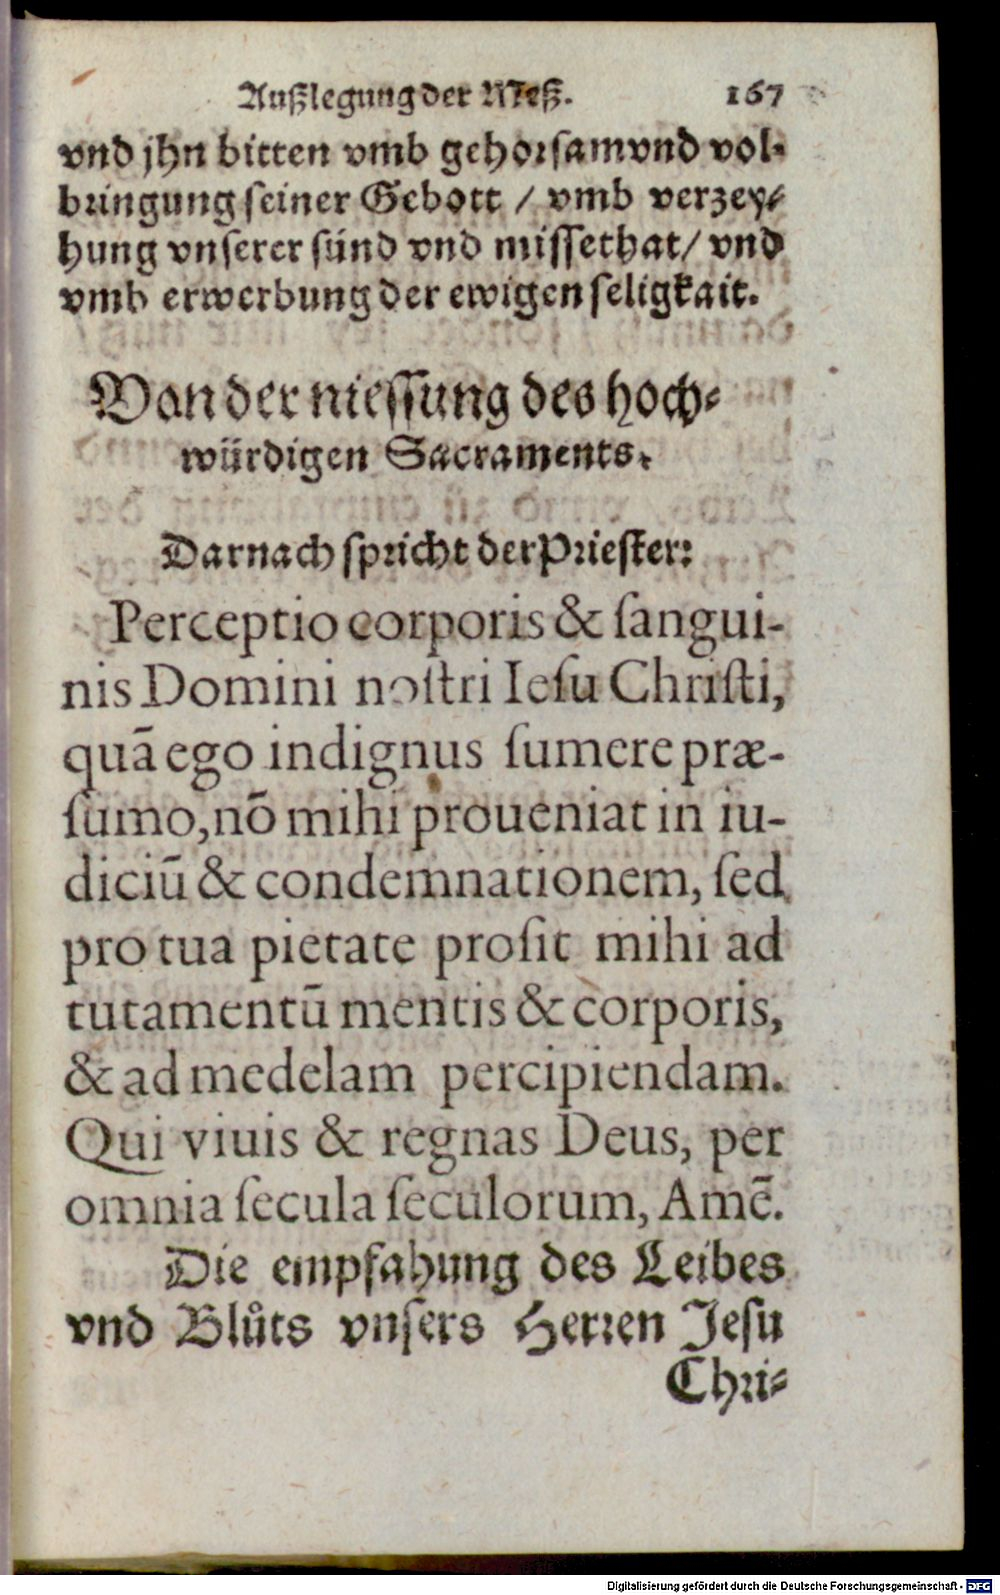 Außlegung der Meß. 167
vnd jhn bitten vmb gehorsam vnd vol-
bringung seiner Gebott / vmb verzey-
hung vnserer sünd vnd missethat / vnd
vmb erwerbung der ewigen seligkait.
Von der niessung des hoch-
würdigen Sacraments.
Darnach spricht der Priester:
Perceptio corporis & sangui-
nis Domini nostri Iesu Christi,
quā ego indignus sumere præ-
sumo, nō mihi proueniat in iu-
diciū & condemnationem, sed
pro tua pietate prosit mihi ad
tutamentū mentis & corporis,
& ad medelam percipiendam.
Qui viuis & regnas Deus, per
omnia secula seculorum, Amē.
Die empfahung des Leibes
vnd Blůts vnsers Herren Jesu
Chri-
Digitalisierung gefördert durch die Deutsche Forschungsgemeinschaft - DFG